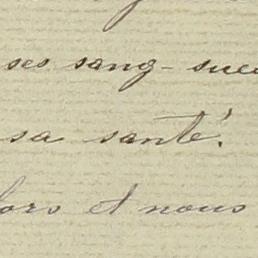 ses sang-sue
sa santé.
lors et nous